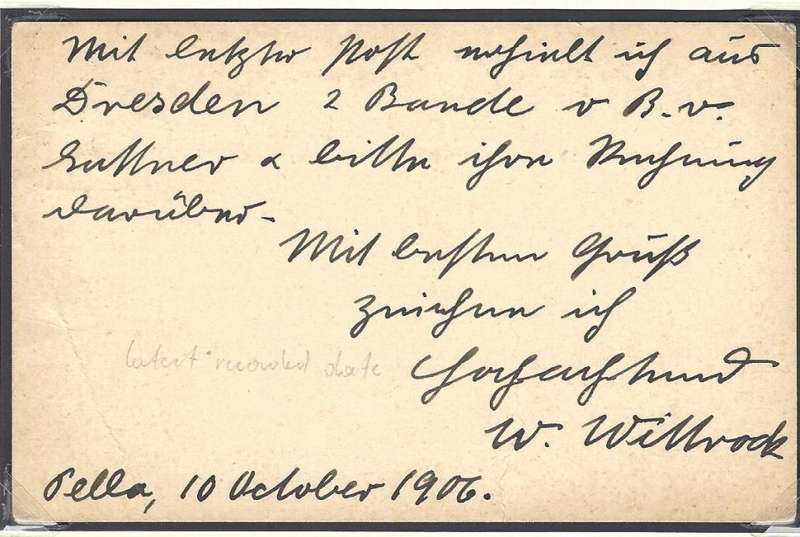 Mit letzter Post erhielt ich aus
Dresden 2 Bande v B. v.
Suttner & bitte ihre Rechnung
darüber -
Mit besten Gruß
zeichne ich
latest recorded date
Hochachtend
W. Wittrock
Pella, 10 October 1906.